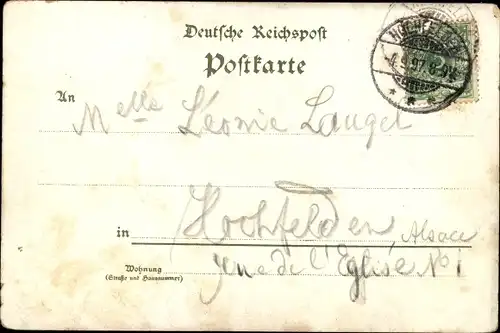 Deutsche Reichspost
Postkarte
An
Melle Léonie Laugel
Hochfelden
in
Alsace
rue de l'Eglise No 1
Wohnung
(Straße und Hausnummer)